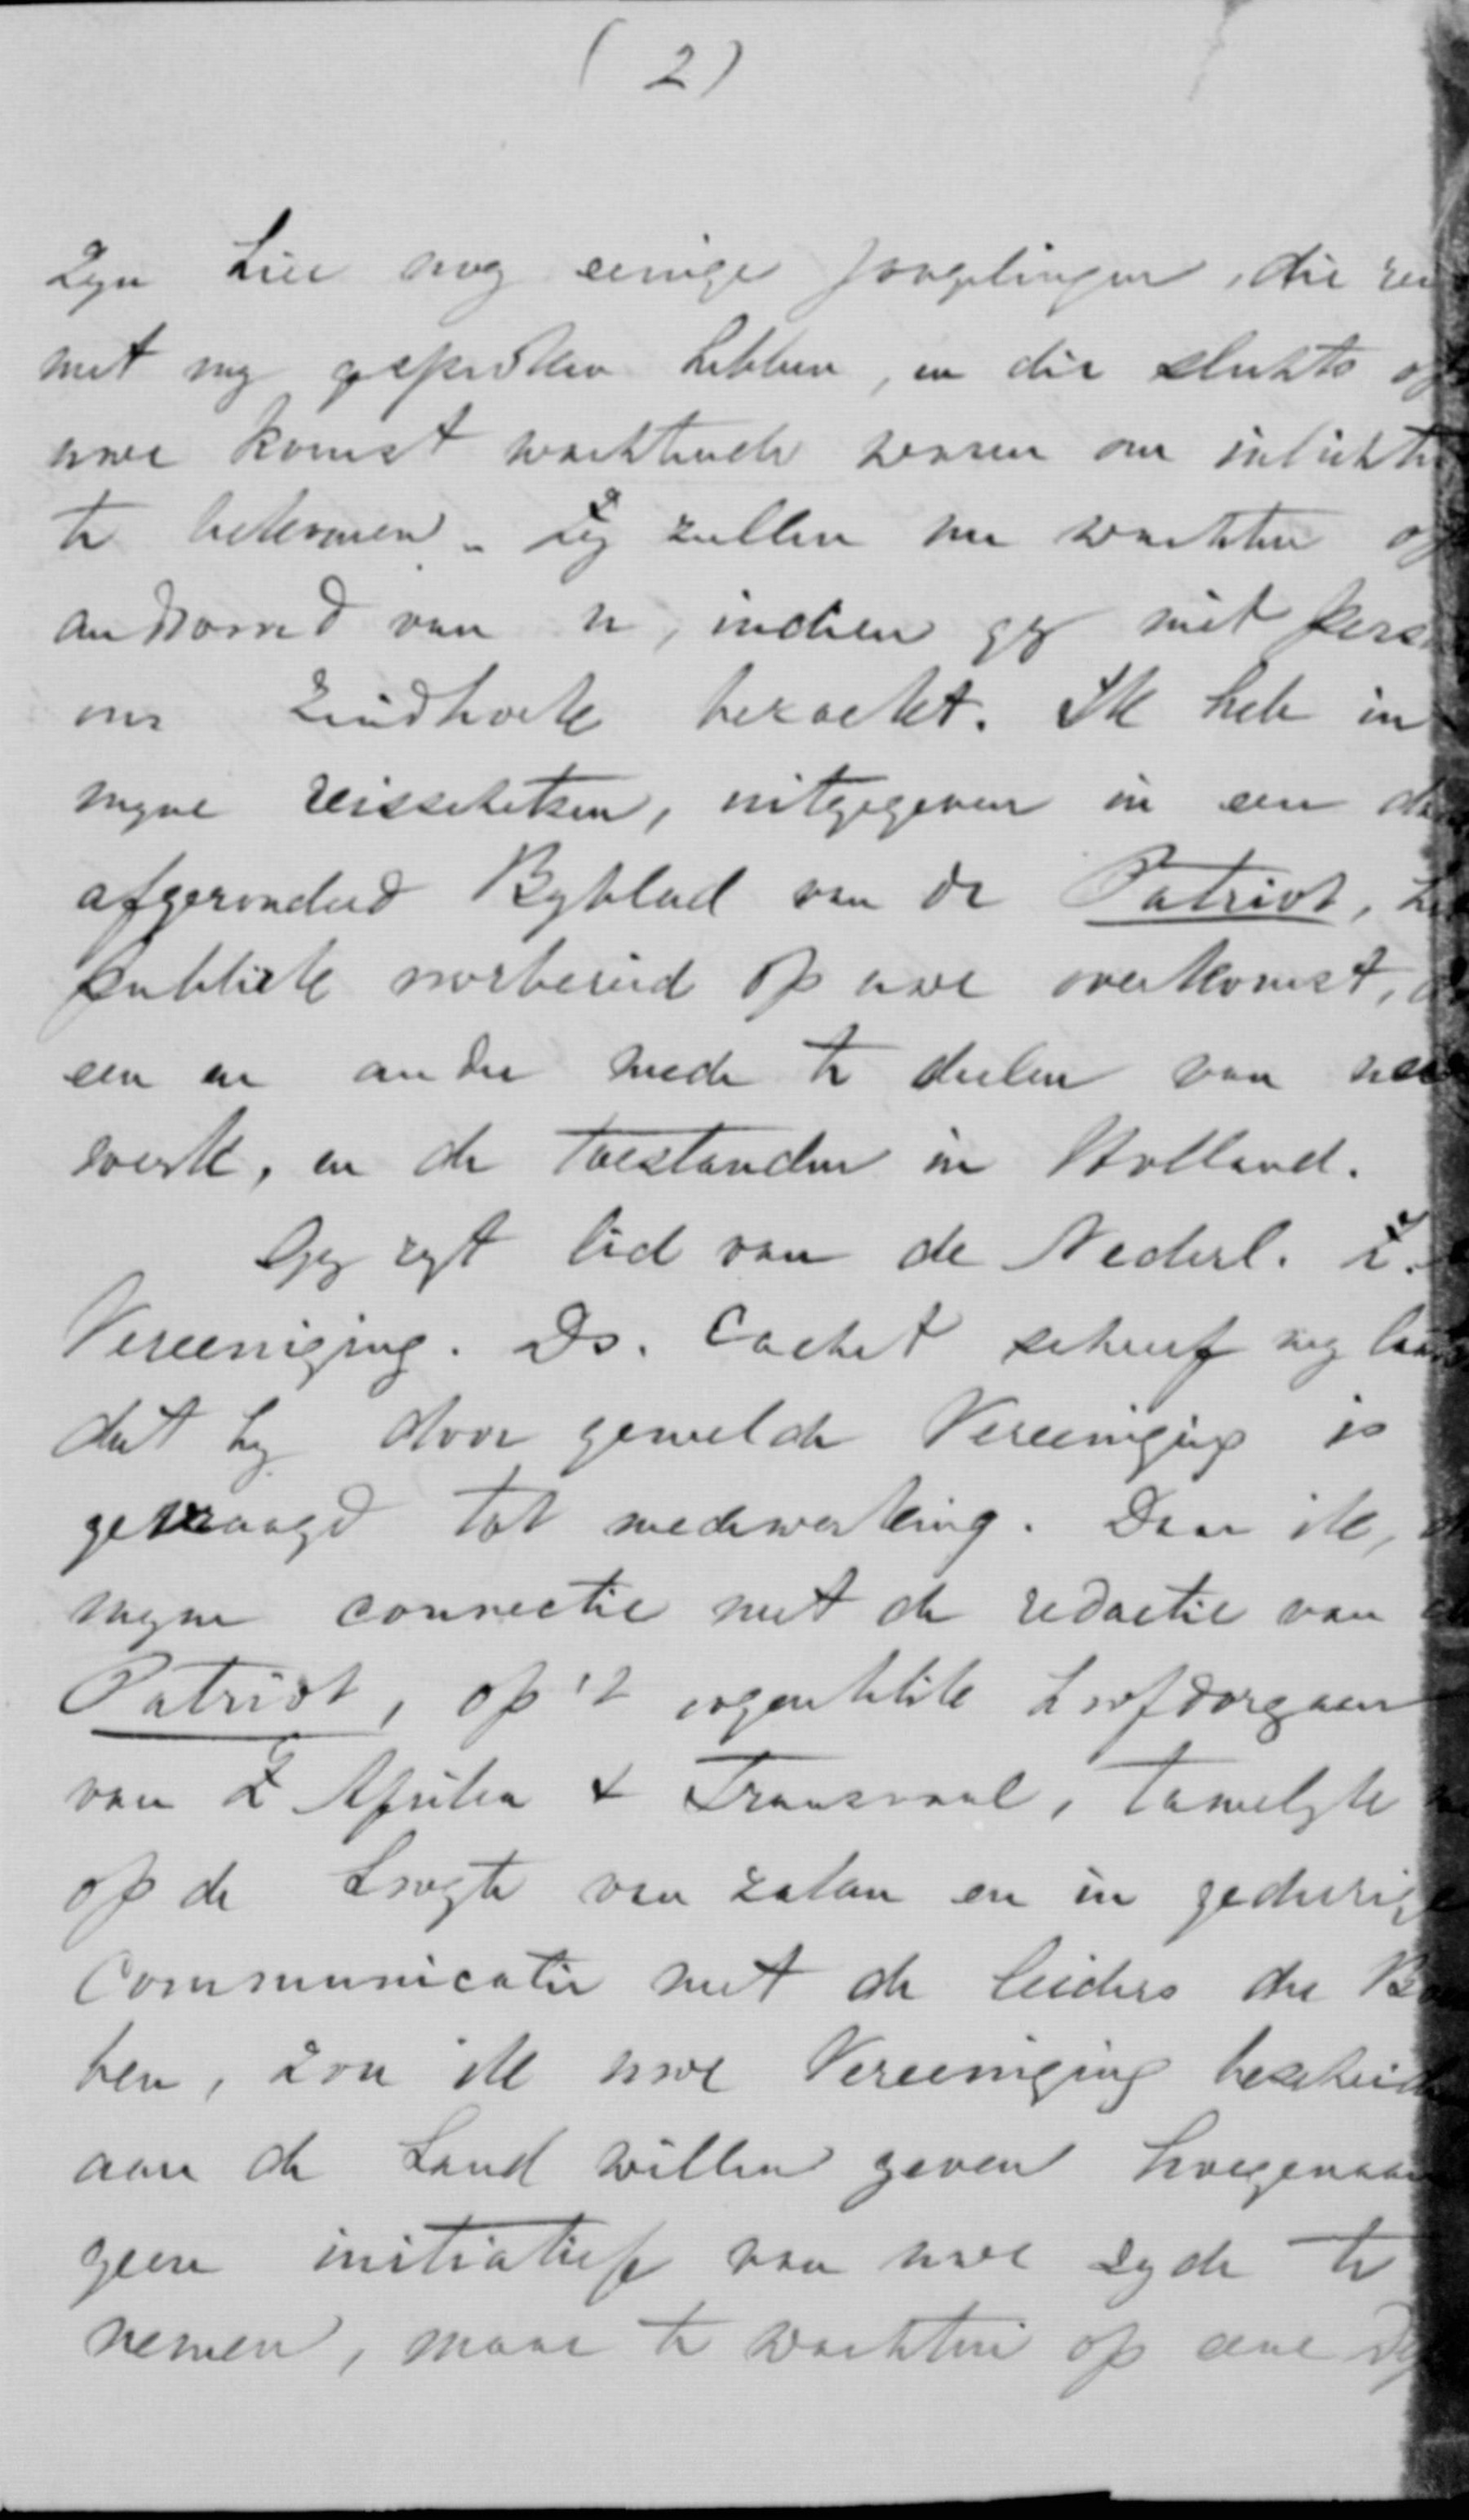 (2)
Zyn hier nog eenige jongelingen, die
met my gesproken hebben, en die slechts
uwe komst wachtende waren om
te bekomen. Zy zullen nu wachten
antwoord van u, indien gy niet
ons Zuidhoek bezoekt. Ik heb in
myne reisschetsen, uitgegeven in een
afzonderd Byblad van de Patriot,
publiek voorbereid op uwe overkomst,
een en ander mede te deelen van
werk, en de toestanden in Holland.
Gy zyt lid van de Nederl. Z.
Vereeniging. Ds. Cachet schreef my
dat hy door gemelde Vereeniging is
gevraagd tot medewerking. Daar ik,
myne connectie met de redactie van
Patriot, op 't oogenblik hoofdorgaan
van Z Afrika & Transvaal, tamelyk
op de hoogte van zaken en in
Communicatie met de leiders der
ben, zou ik uwe Vereeniging
aan de hand willen geven
geen initiatief van uwe zyde te
nemen, maar te wachten op eene